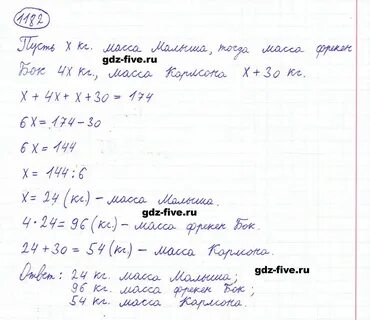 1182
Пусть x кг. масса Малыша, тогда масса фрекен
gdz-five.ru
Бок 4x кг., масса Карлсона x + 30 кг.
x + 4x + x + 30 = 174
6x = 174 - 30
gdz-five.ru
6x = 144
x = 144 : 6
x = 24 (кг.) - масса Малыша.
gdz-five.ru
4 · 24 = 96 (кг) - масса фрекен Бок.
24 + 30 = 54 (кг) - масса Карлсона.
Ответ: 24 кг. масса Малыша;
gdz-five.ru
96 кг. масса фрекен Бок;
54 кг. масса Карлсона.